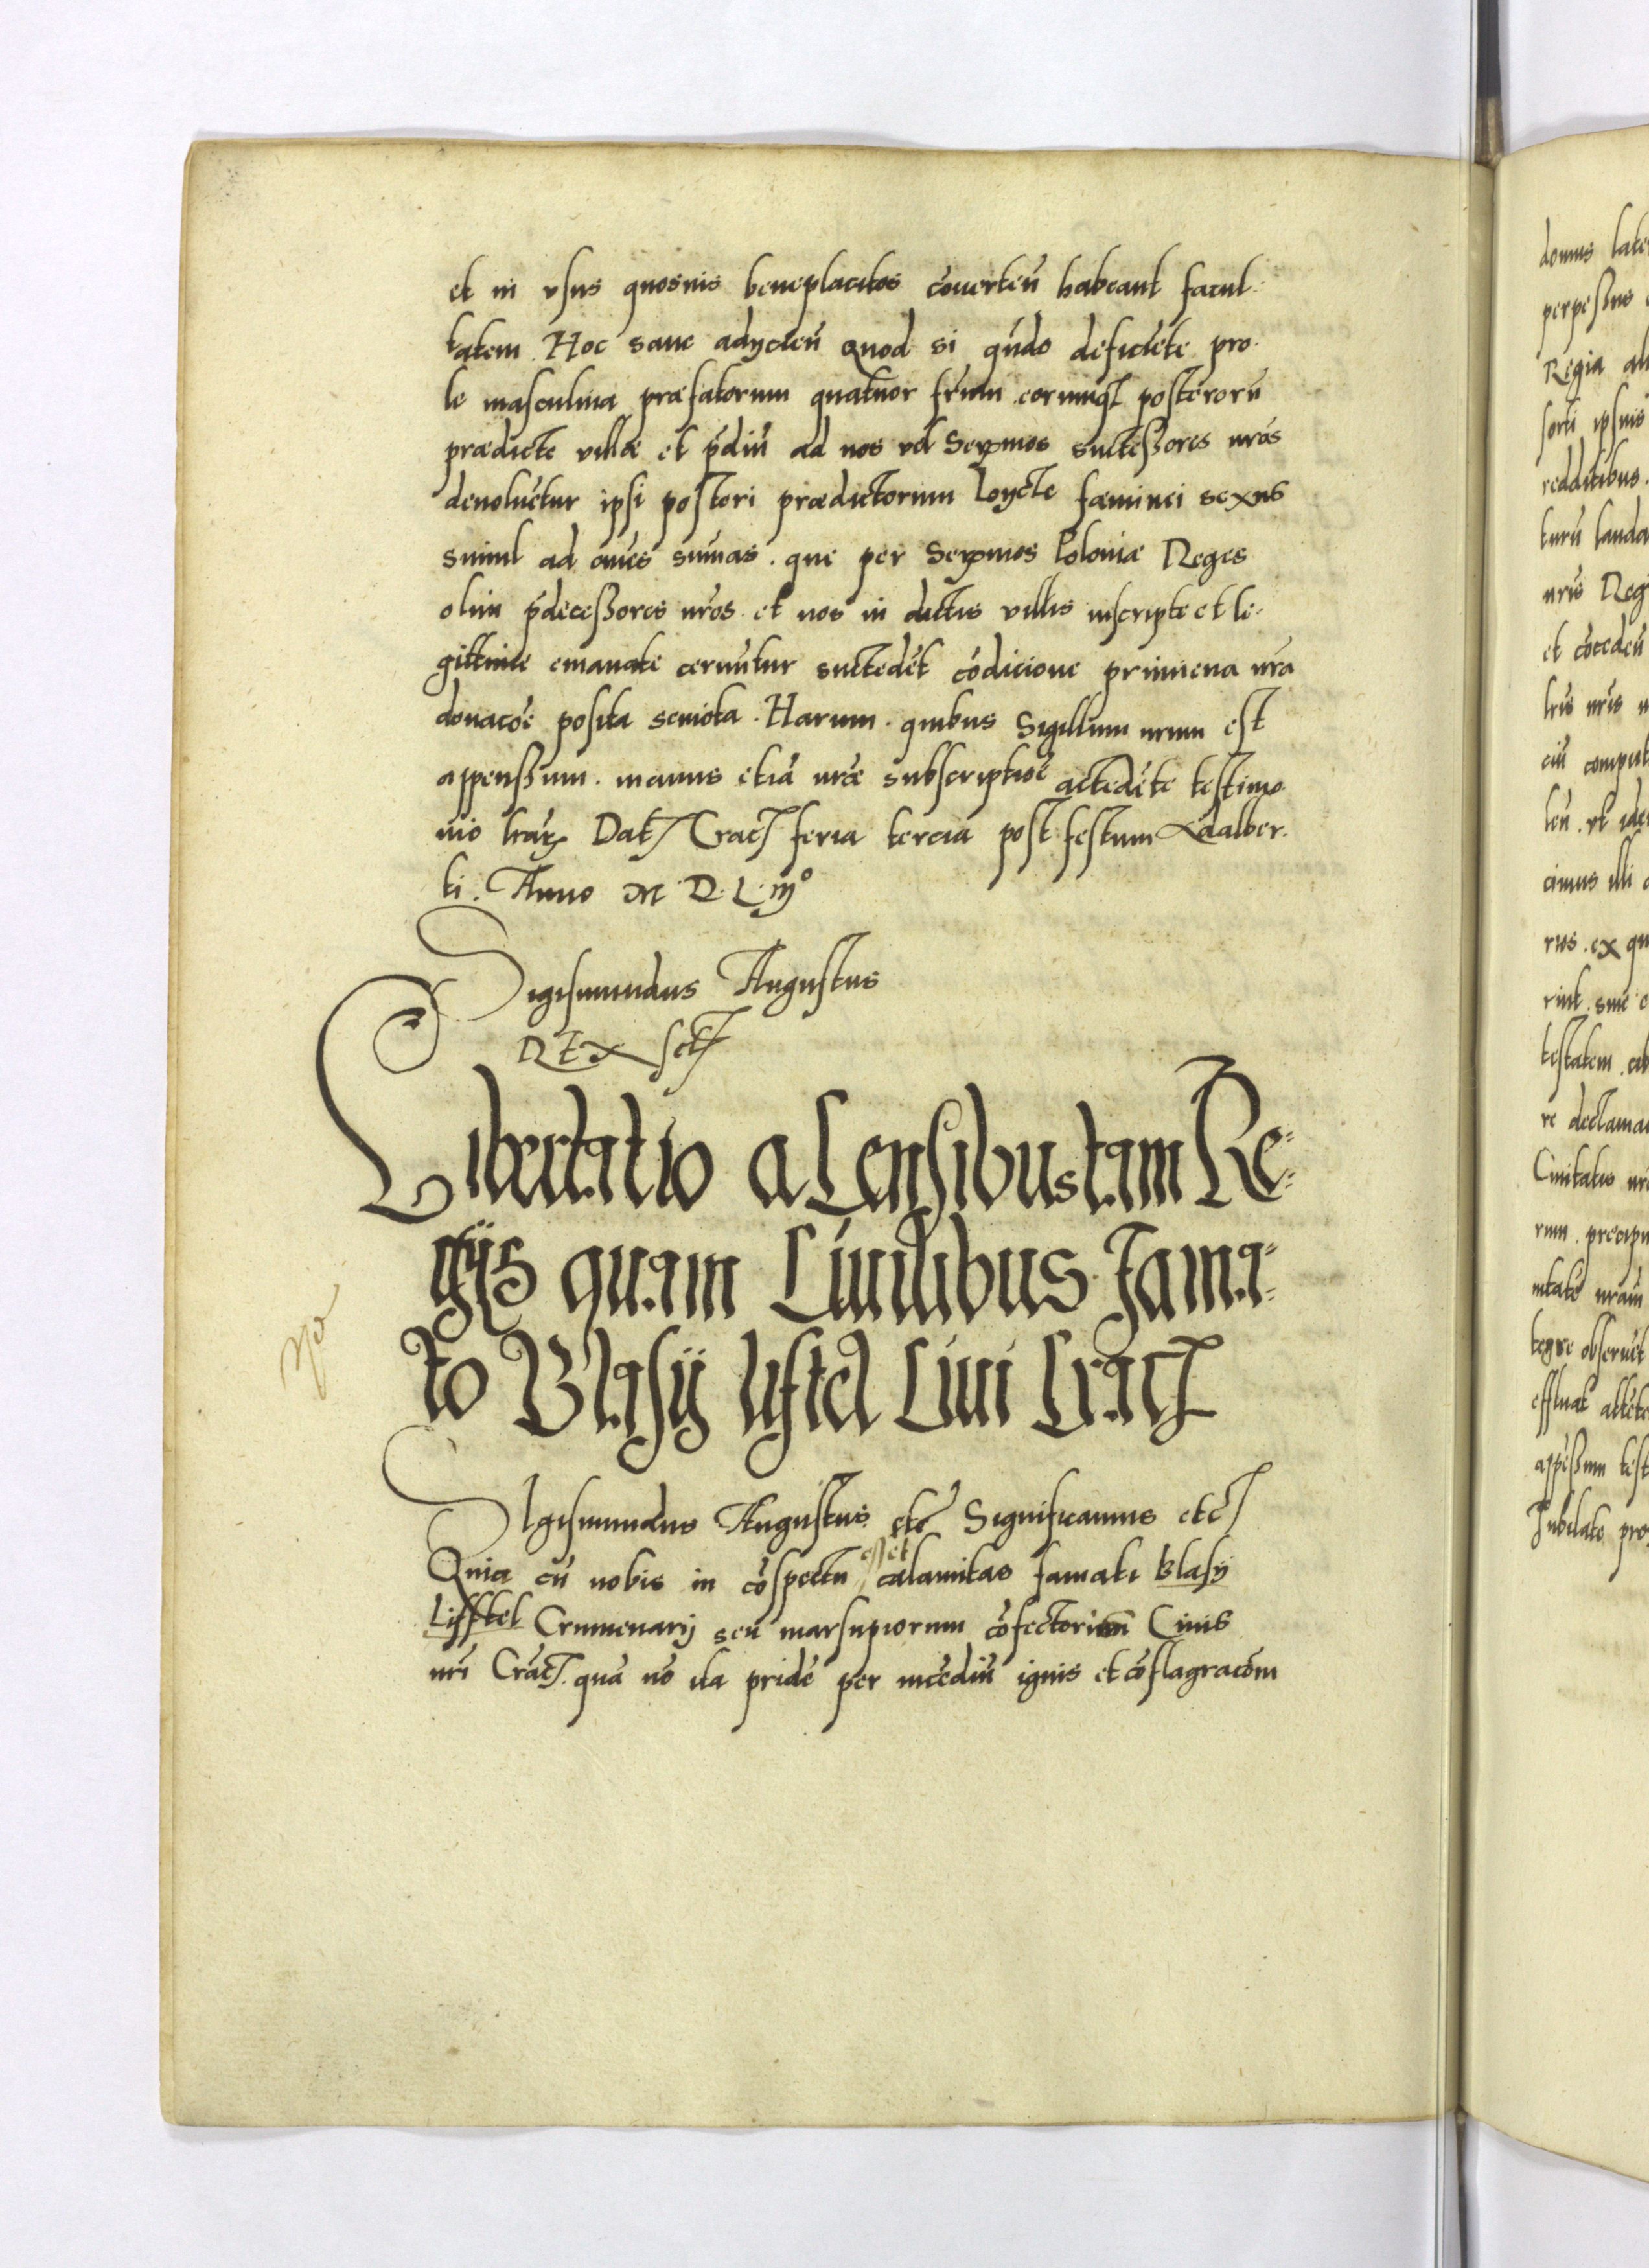 et in vsus quosuis beneplacitos cōuerteñ habeant facul-
tatem. Hoc sane adijcieñ Quod si qn̄do deficiēte pro-
le masculina præfatorum quatuor frūm eorumq3 posterorū
prædicte villæ et p̄diū ad nos vel Serēmos successores nrōs
deuoluētur ipsi posteri prædictorum Loycte fæminei sexus
simul ad oмēs sumas. que per Serēmos Poloniæ Reges
olim p̄decessores nrōs et nos in dictis villis inscripte et le-
gittime emanate cernūtur succedēt cōdicione primeua nrā
donacōe posita semota. Harum. quibus Sigillum nrūm est
appenssum. manus etiā nrē subscriptiōe accedēte testimo-
nio lrārum Dat Crac feria tercia post festum Adalber-
ti. Anno M D L iijo
Sigismundus Augustus
REX sst
Libertatio a Censibus tam Re-
gijs quam Ciuilibus Fama-
to Blasij Liftel Ciui Crac
SIgismundus Augustus etc Significamus etc
Quia cū nobis in cōspectu esset calamitas famati Blasij
Lifftel Crumenarij seu marsupiorum cōfectorim Ciuis
nrī Crac. quā nō ita pridē per incēdiū ignis et cōflagracōm
domus late
perpessus
Regia
sorti ipsius
redditibus.
turū lauda
nrīs Reg
et cōcedeñ
lrīs nrīs
eiū comput
teñ. vt ide
cimus illi
rios. ex qu
rint. siue
testatem.
re declama
Ciuitatis nr
rum. precipu
nitatē nrām
tegre obseruēt
effluat
appēssum test
Iubilate pro